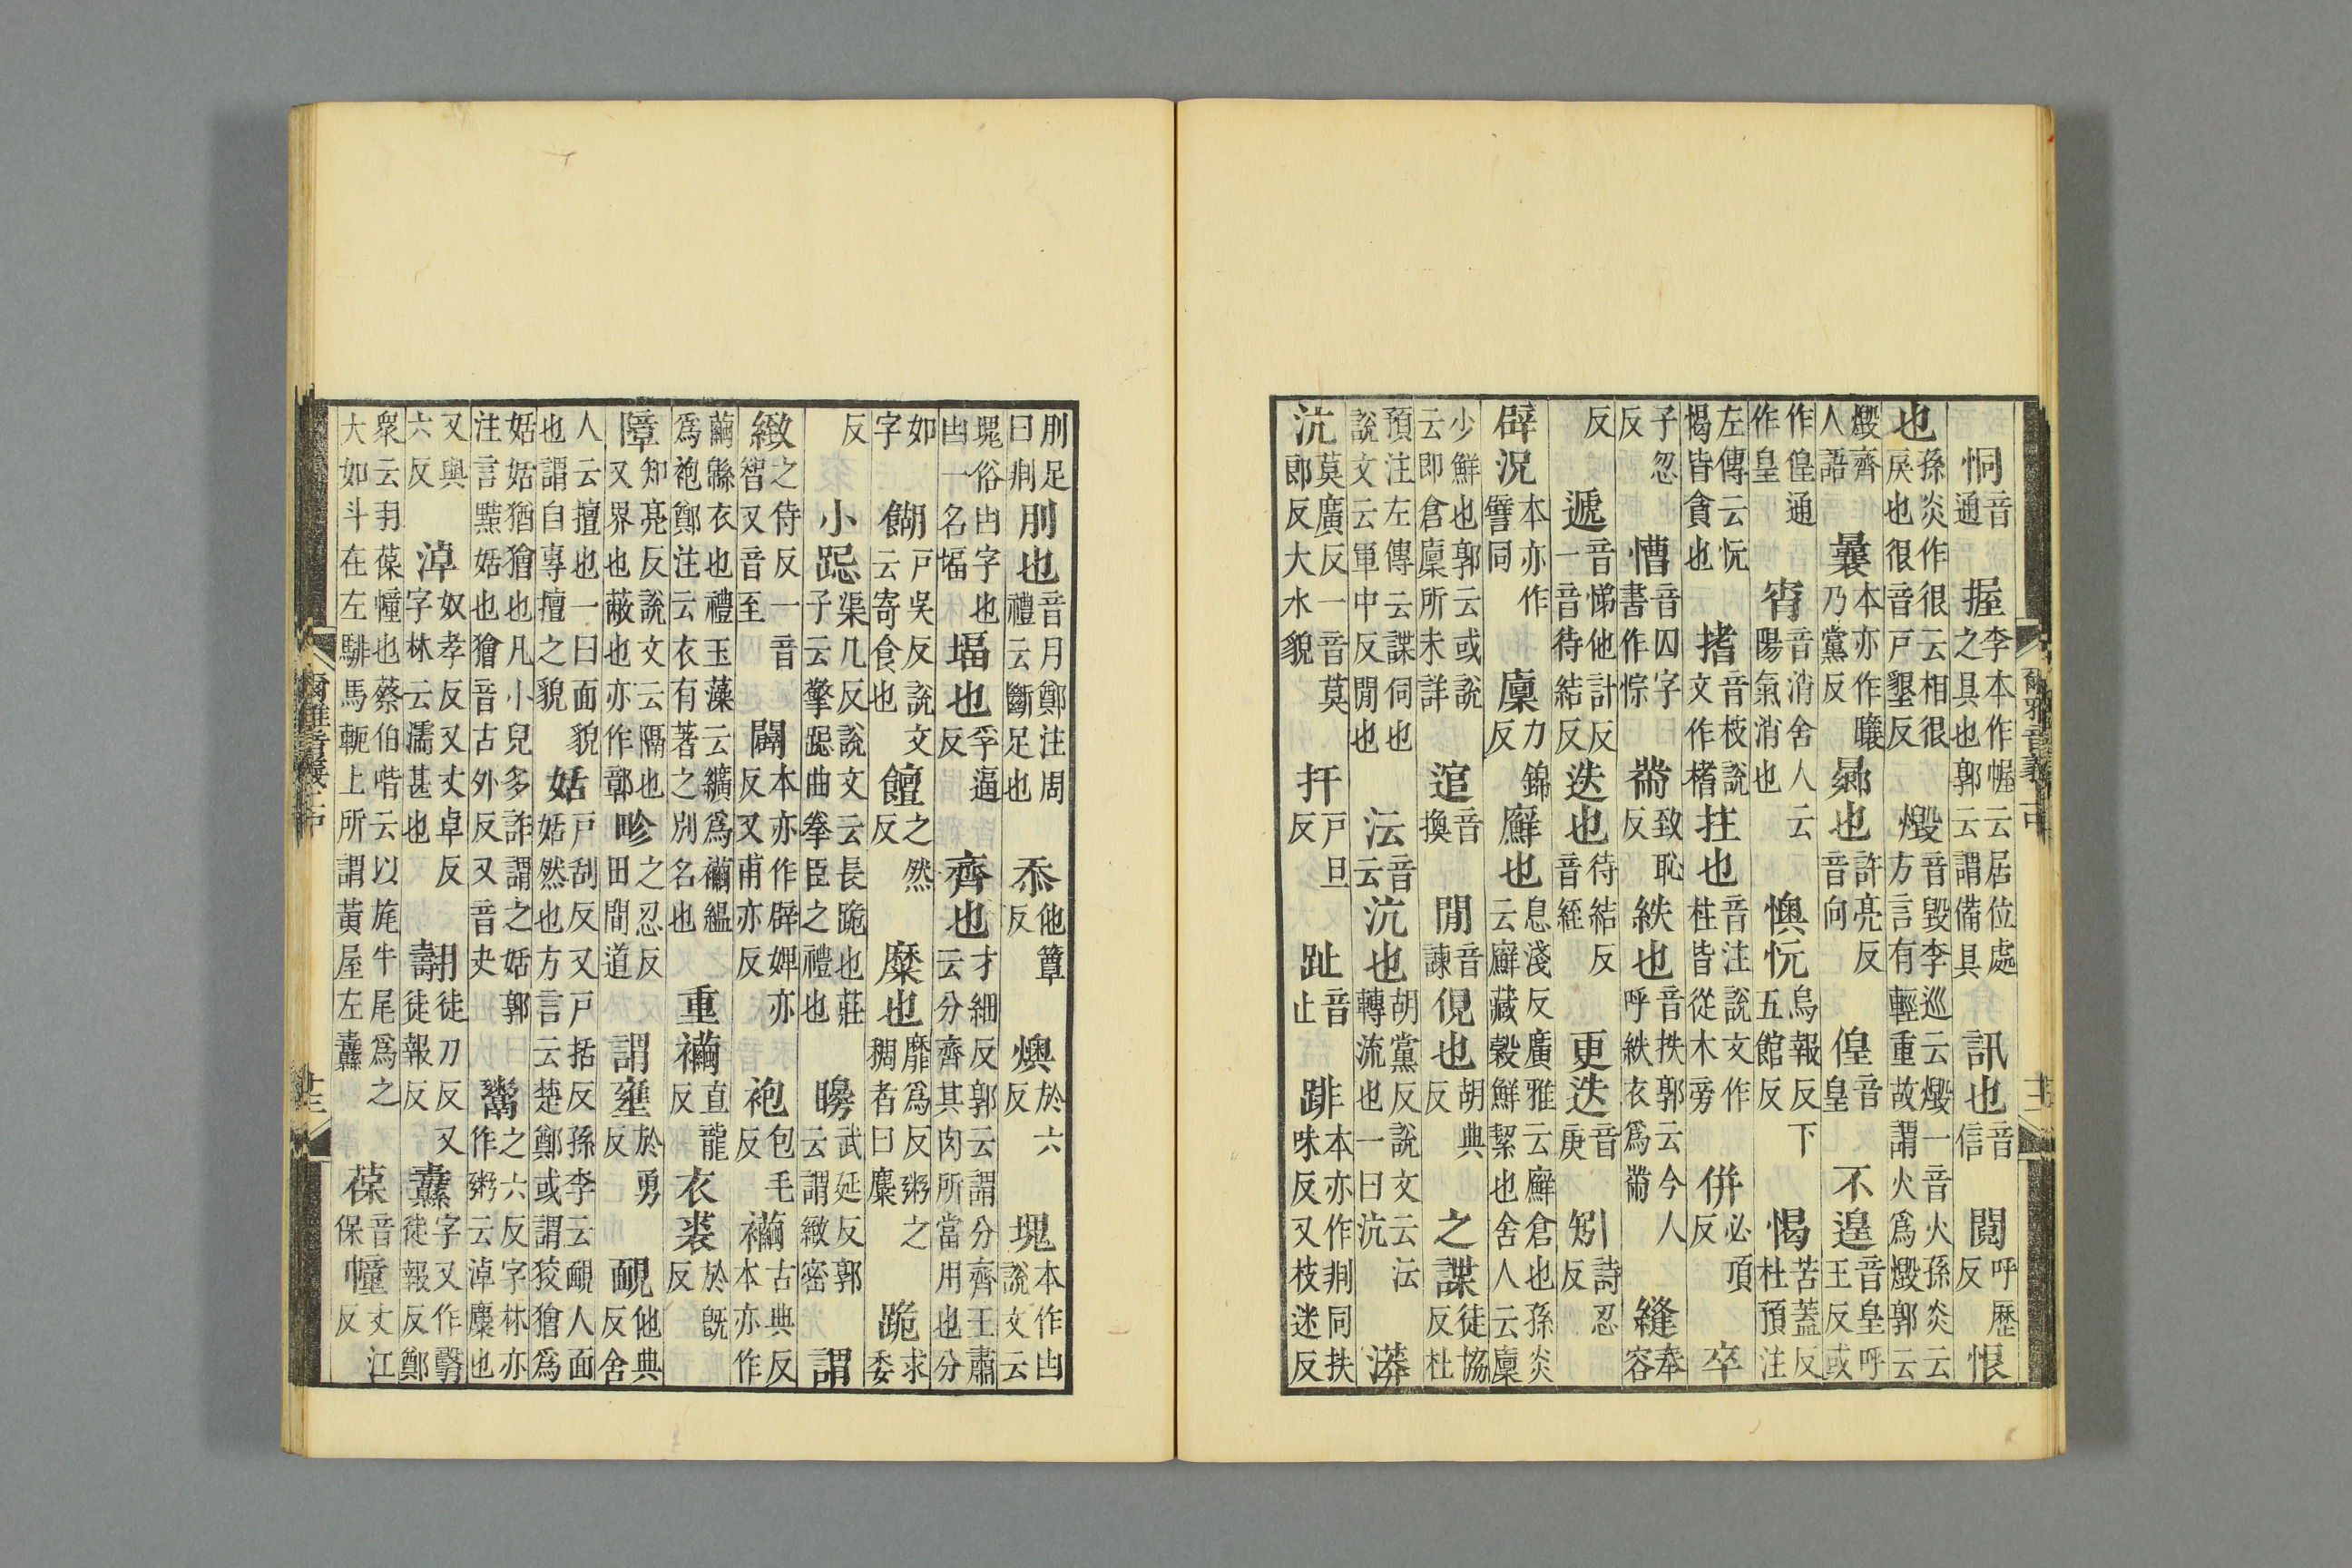 恫音通握李本作幄云居位處之具也郭云謂備具訊也音信鬩呼歷反恨
也孫炎作很云相很戾也很音戸墾反燬音毀李巡云燬一音火孫炎云方言有輕重故謂火爲燬郭云
燬齊人語曩本亦作曩乃黨反曏也許亮反音向偟音皇不遑音皇呼王反或
作偟通作皇宵音消舍人云陽氣消也懊忨烏報反下五館反愒苦蓋反杜預注
左傳云忨愒皆貪也揩音枝說文作楮拄也音注說文作柱皆從木旁併必頂反卒
子忽反慒音囚字書作悰黹致恥反紩也音抶郭云今人呼紩衣爲黹縫奉容
反遞音悌他計反一音待結反迭也待結反音絰更迭音庚矧詩忍反
辟況本亦作譬同廩力錦反廯也息淺反廣雅云廯倉也孫炎云廯藏榖鮮絜也舍人云廩
少鮮也郭云或說云即倉廩所未詳逭音換閒音諫俔也胡典反之諜徒協反杜
預注左傳云諜伺也說文云軍中反閒也沄音云沆也胡黨反說文云沄轉流也一曰沆漭
沆莫廣反一音莫郎反大水貌扞戸旦反趾音止䠊本亦作剕同扶味反又枝迷反
爾雅音義上中
十二
刖足曰剕刖也音月鄭注周禮云斷足也忝他簟反燠於六反塊本作凷說文云
塊俗凷字也凷一名堛堛也孚逼反齊也才細反郭云謂分齊王肅云分齊其肉所當用也分
如字餬戸吳反說文云寄食也饘之然反糜也靡爲反粥之稠者曰麋跪求委
反小跽渠几反說文云長跪也莊子云擎跽曲拳臣之禮也矏武延反郭云謂緻密謂
緻之待反一音智又音至闢本亦作辟婢亦反又甫亦反袍包毛反襺古典反本亦作
繭緜衣也禮玉藻云纊爲襺縕爲袍鄭注云衣有著之別名也重襺直龍反衣裘於旣反
障知亮反說文云隔也又界也蔽也亦作鄣畛之忍反田間道謂壅於勇反靦他典反舍
人云擅也一曰面貌也謂自專擅之貌姡戸刮反又戸括反孫李云靦人面姡然也方言云楚鄭或謂狡獪爲
姡姡猶獪也凡小兒多詐謂之姡郭注言黠姡也獪音古外反又音夬鬻之六反字林亦作粥云淖麋也
又與六反淖奴孝反又丈卓反字林云濡甚也翿徒刀反又徒報反纛字又作翳徒報反鄭
衆云羽葆幢也蔡伯喈云以旄牛尾爲之大如斗在左騑馬軛上所謂黃屋左纛葆音保幢丈江反
爾雅音義上中
十三